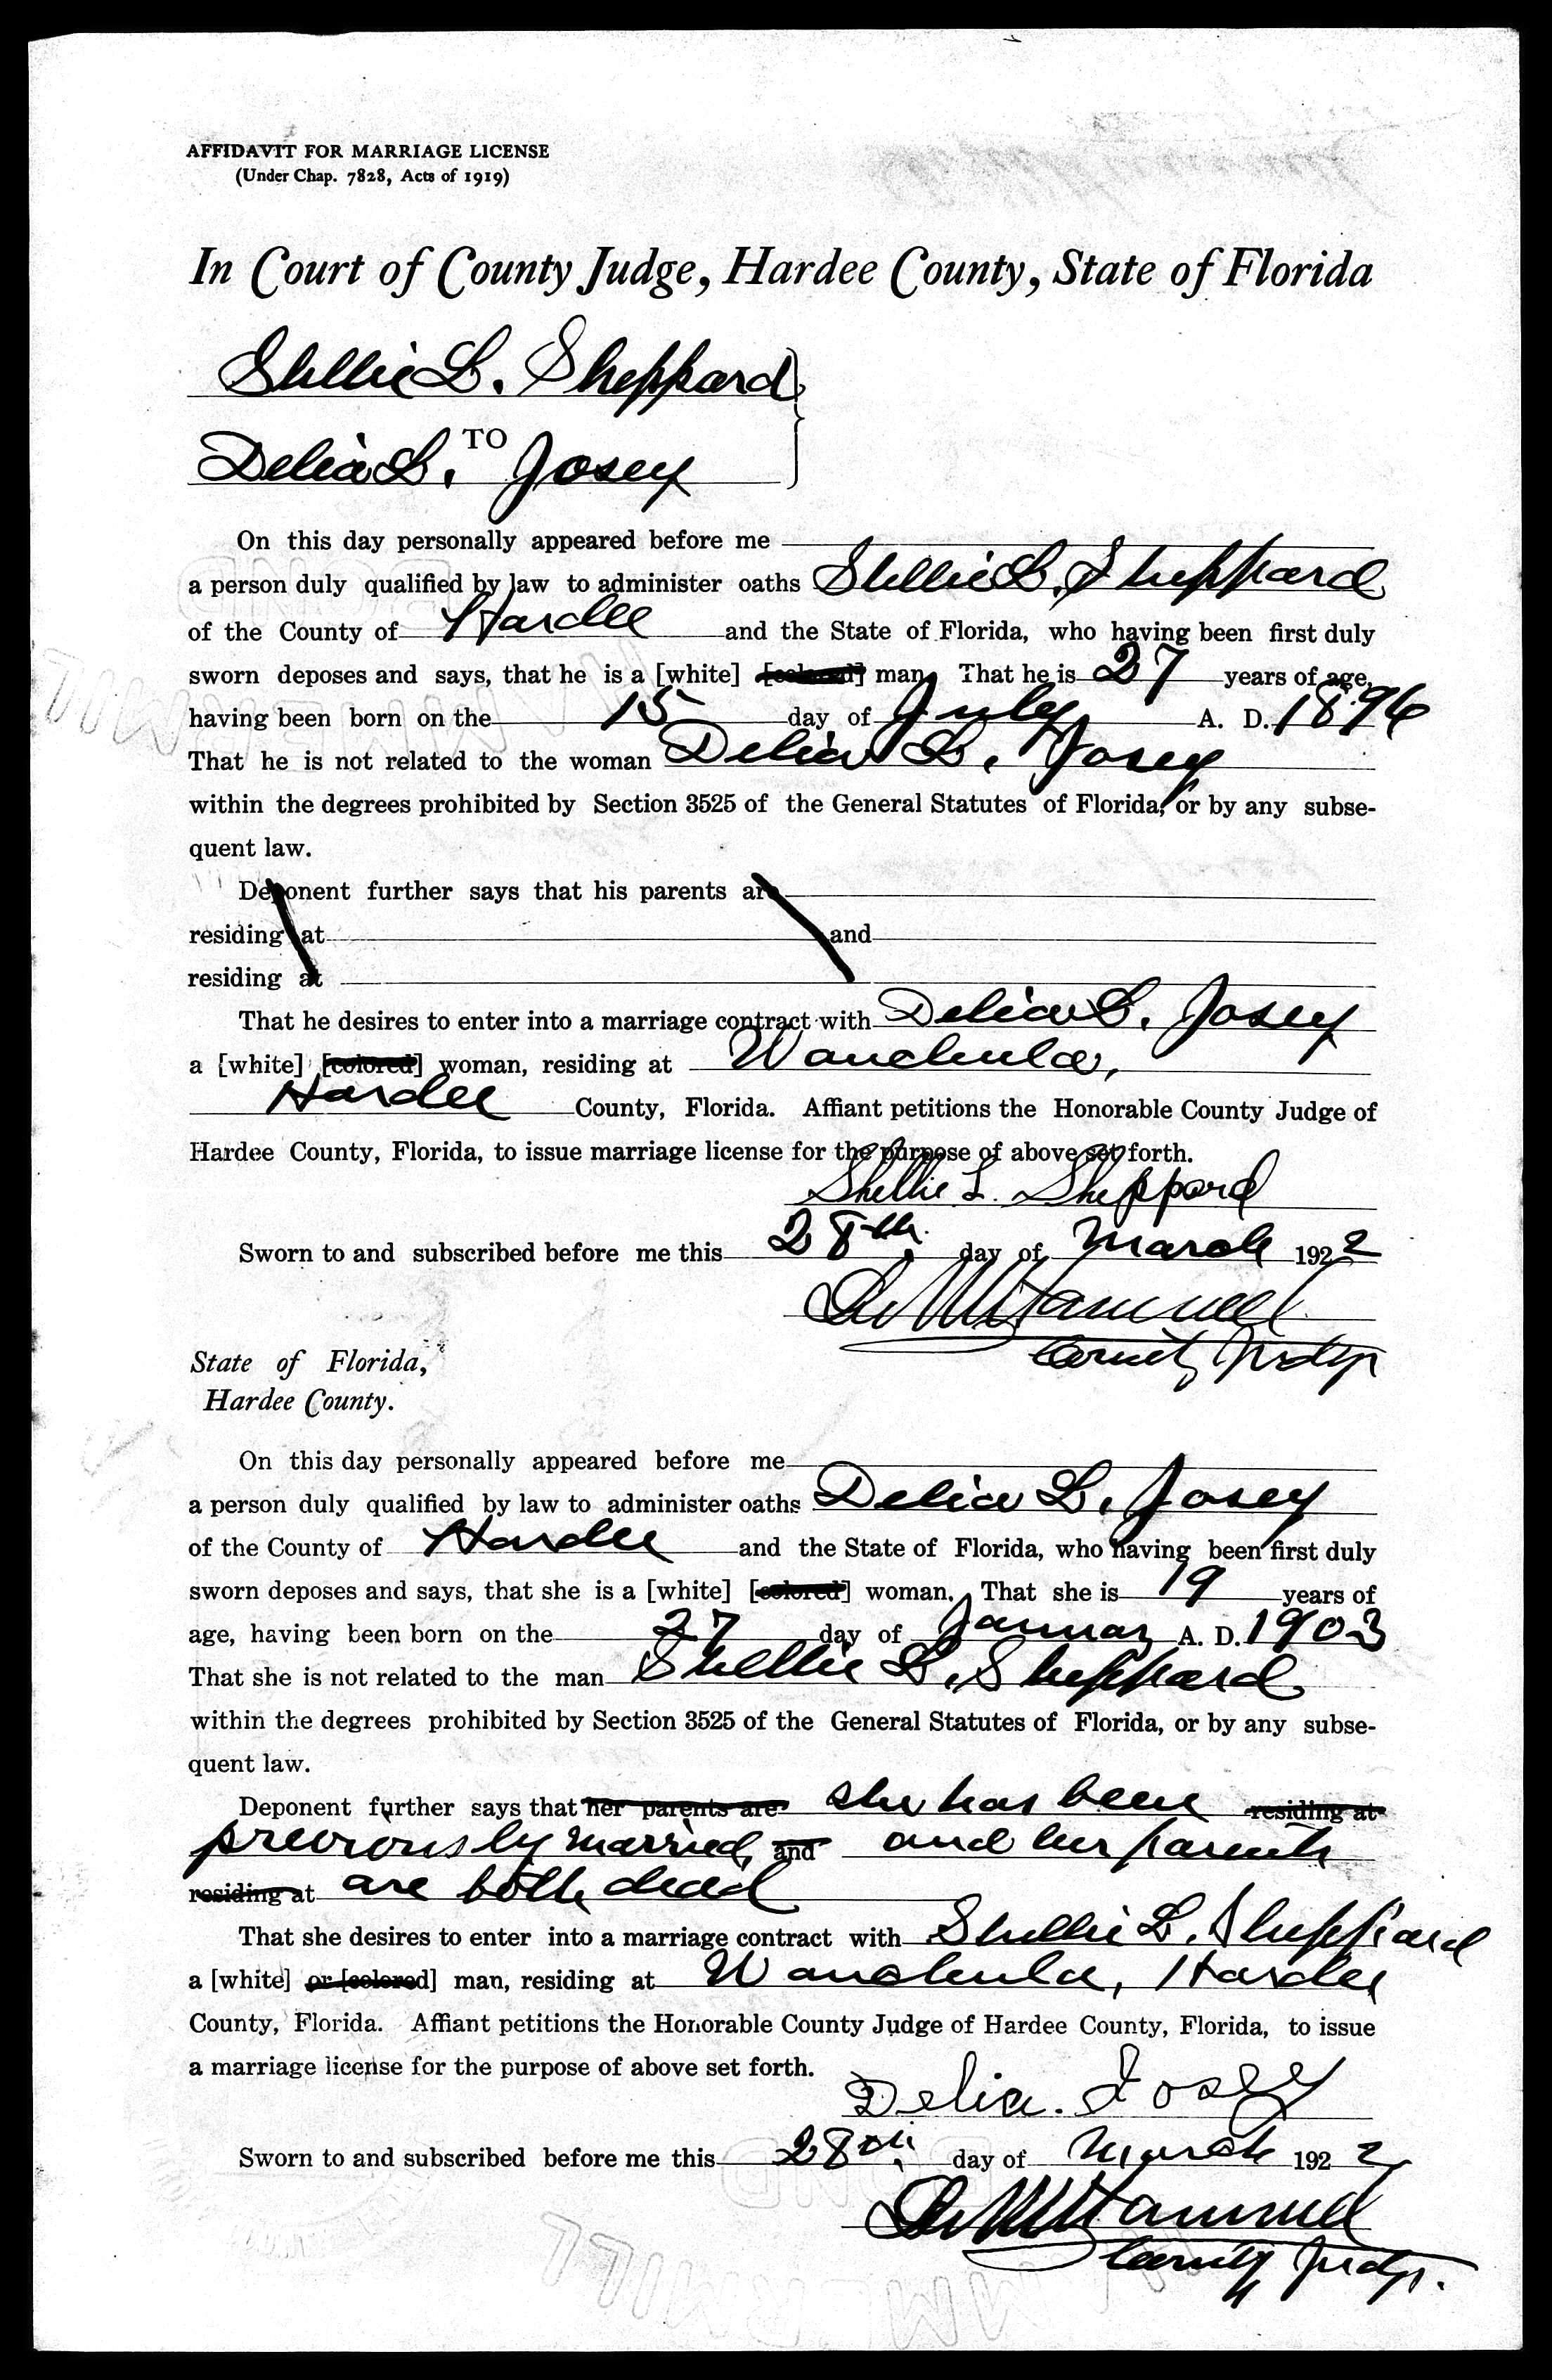 AFFIDAVIT FOR MARRIAGE LICENSE
(Under Chap. 7828, Acts of 1919)
In Court of County Judge, Hardee County, State of Florida
Shellie L. Sheppard
TO
Delia L. Josey
On this day personally appeared before me
a person duly qualified by law to administer oaths Shellie L. Sheppard
of the County of Hardee and the State of Florida, who having been first duly
sworn deposes and says, that he is a [white] [colored] man. That he is 27 years of age,
having been born on the 15 day of July A. D. 1896
That he is not related to the woman Delia L. Josey
within the degrees prohibited by Section 3525 of the General Statutes of Florida, or by any subse-
quent law.
Deponent further says that his parents are
residing at and
residing at
That he desires to enter into a marriage contract with Delia L. Josey
a [white] [colored] woman, residing at Wauchula,
Hardee County, Florida. Affiant petitions the Honorable County Judge of
Hardee County, Florida, to issue marriage license for the purpose of above set forth.
Shellie L. Sheppard
Sworn to and subscribed before me this 28th. day of March 1922
County Judge
State of Florida,
Hardee County.
On this day personally appeared before me
a person duly qualified by law to administer oaths Delia L. Josey
of the County of Hardee and the State of Florida, who having been first duly
sworn deposes and says, that she is a [white] [colored] woman. That she is 19 years of
age, having been born on the 27 day of January A. D. 1903
That she is not related to the man Shellie L. Sheppard
within the degrees prohibited by Section 3525 of the General Statutes of Florida, or by any subse-
quent law.
Deponent further says that her parents are she has been residing at
previously married, and and her parents
residing at are both dead
That she desires to enter into a marriage contract with Shellie L. Sheppard
a [white] or [colored] man, residing at Wauchula, Hardee
County, Florida. Affiant petitions the Honorable County Judge of Hardee County, Florida, to issue
a marriage license for the purpose of above set forth.
Delia. Josey
Sworn to and subscribed before me this 28th. day of March 1922
County Judge.